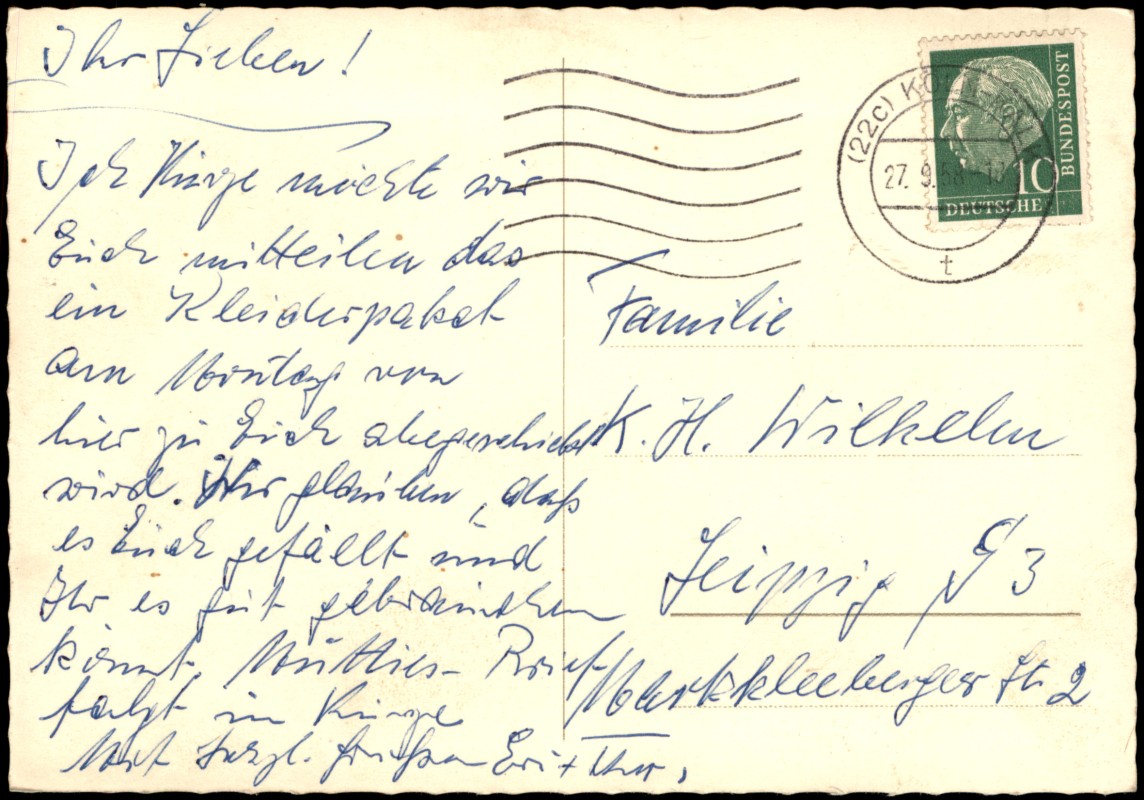 Ihr Lieben!
In Kürze möchte wir
Euch mitteilen das
ein Kleiderpaket
am Montag von
hier zu Euch abgeschickt
wird. Wir glauben, daß
es Euch gefällt und
Ihr es gut gebrauchen
könnt. Mutties- Brief
folgt in Kürze
Mit herzl. Grüßen
(22c) KÖLN
27. 9.58-
t
10
DEUTSCHE
BUNDESPOST
Familie
K. H. Wilhelm
Leipzig S 3
Markkleeberger Str 2